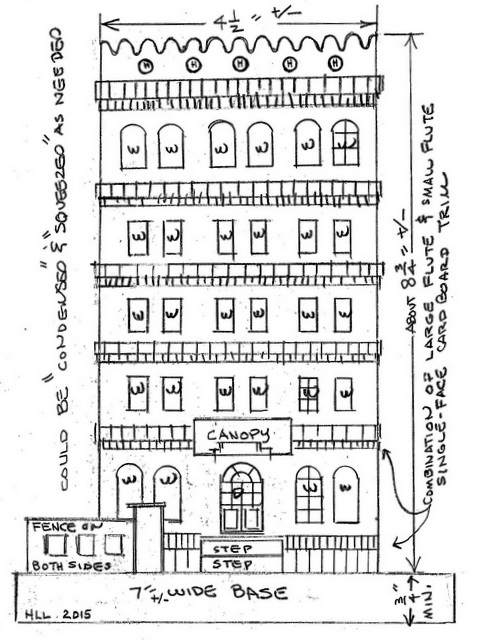 4 1/2" +/-
COULD BE "CONDENSED" & "SQUEEZED" AS NEEDED
H H H H H
W W W W W W
W W W W W W
W W W W W W
W W W W W W
CANOPY
W W D W W
ABOUT 8 3/4" +/-
COMBINATION OF LARGE FLUTE & SMALL FLUTE
SINGLE-FACE CARD BOARD TRIM
FENCE ON
BOTH SIDES
STEP
STEP
7" +/- WIDE BASE
3/4" MIN.
HLL. 2015